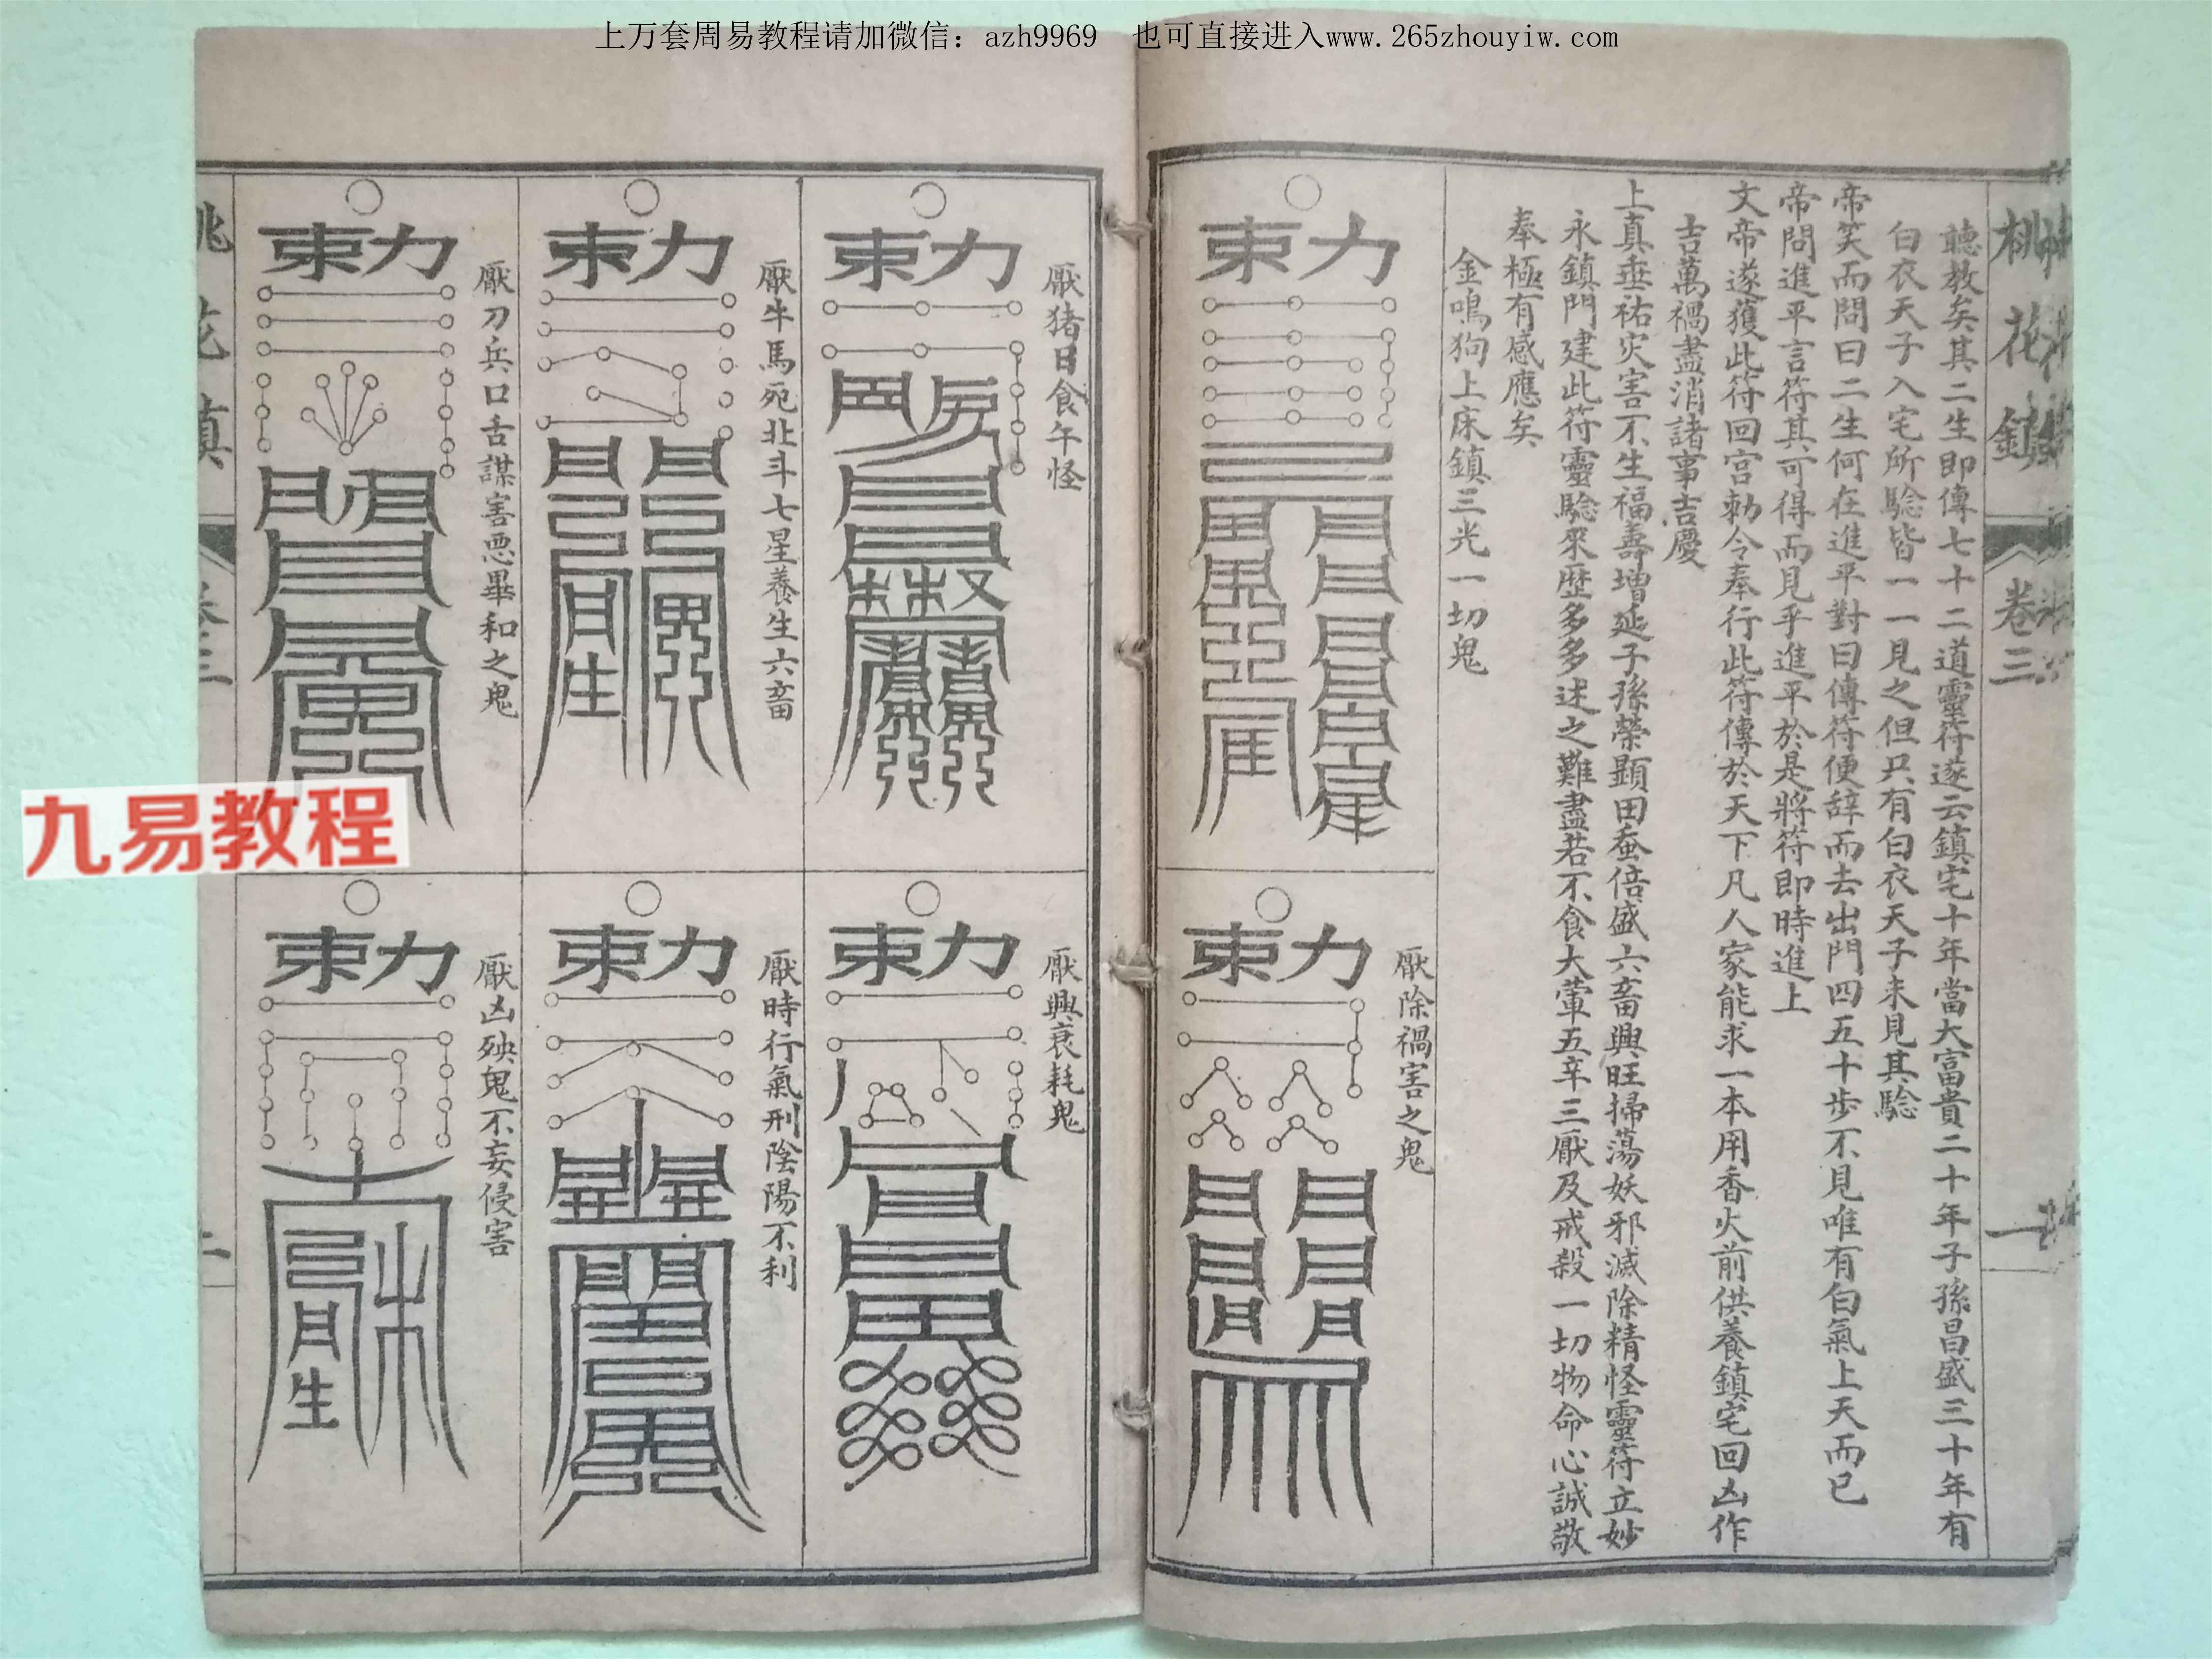 上万套周易教程请加微信：azh9969　也可直接进入www.265zhouyiw.com
桃花鎮
卷三
一
聽教矣其二生即傳七十二道靈符遂云鎮宅十年當大富貴二十年子孫昌盛三十年有
白衣天子入宅所驗皆一一見之但只有白衣天子未見其驗
帝笑而問曰二生何在進平對曰傳符便辞而去出門四五十步不見唯有白氣上天而已
帝問進平言符其可得而見乎進平於是將符即時進上
文帝遂獲此符回宮勑令奉行此符傳於天下凡人家能求一本用香火前供養鎮宅回凶作
吉萬禍盡消諸事吉慶
上真垂祐灾害不生福壽增延子孫榮顯田蚕倍盛六畜興旺掃蕩妖邪滅除精怪靈符立妙
永鎮門建此符靈驗來歷多多述之難盡若不食大葷五辛三厭及戒殺一切物命心誠敬
奉極有感應矣
金鳴狗上床鎮三光一切鬼
力束
厭除禍害之鬼
力束
厭猪日食午怪
力束
厭興衰耗鬼
力束
厭牛馬死北斗七星養生六畜
力束
月生
厭時行氣刑陰陽不利
力束
厭刀兵口舌謀害悪畢和之鬼
力束
厭凶殃鬼不妄侵害
力束
月生
桃花鎮
卷三
二
九易教程